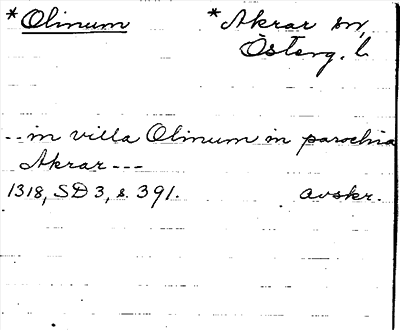 *Olinum *Akrar sn,
Österg. l.
-- in villa Olinum in parochia
Akrar ---
1318, SD 3, s. 391. avskr.